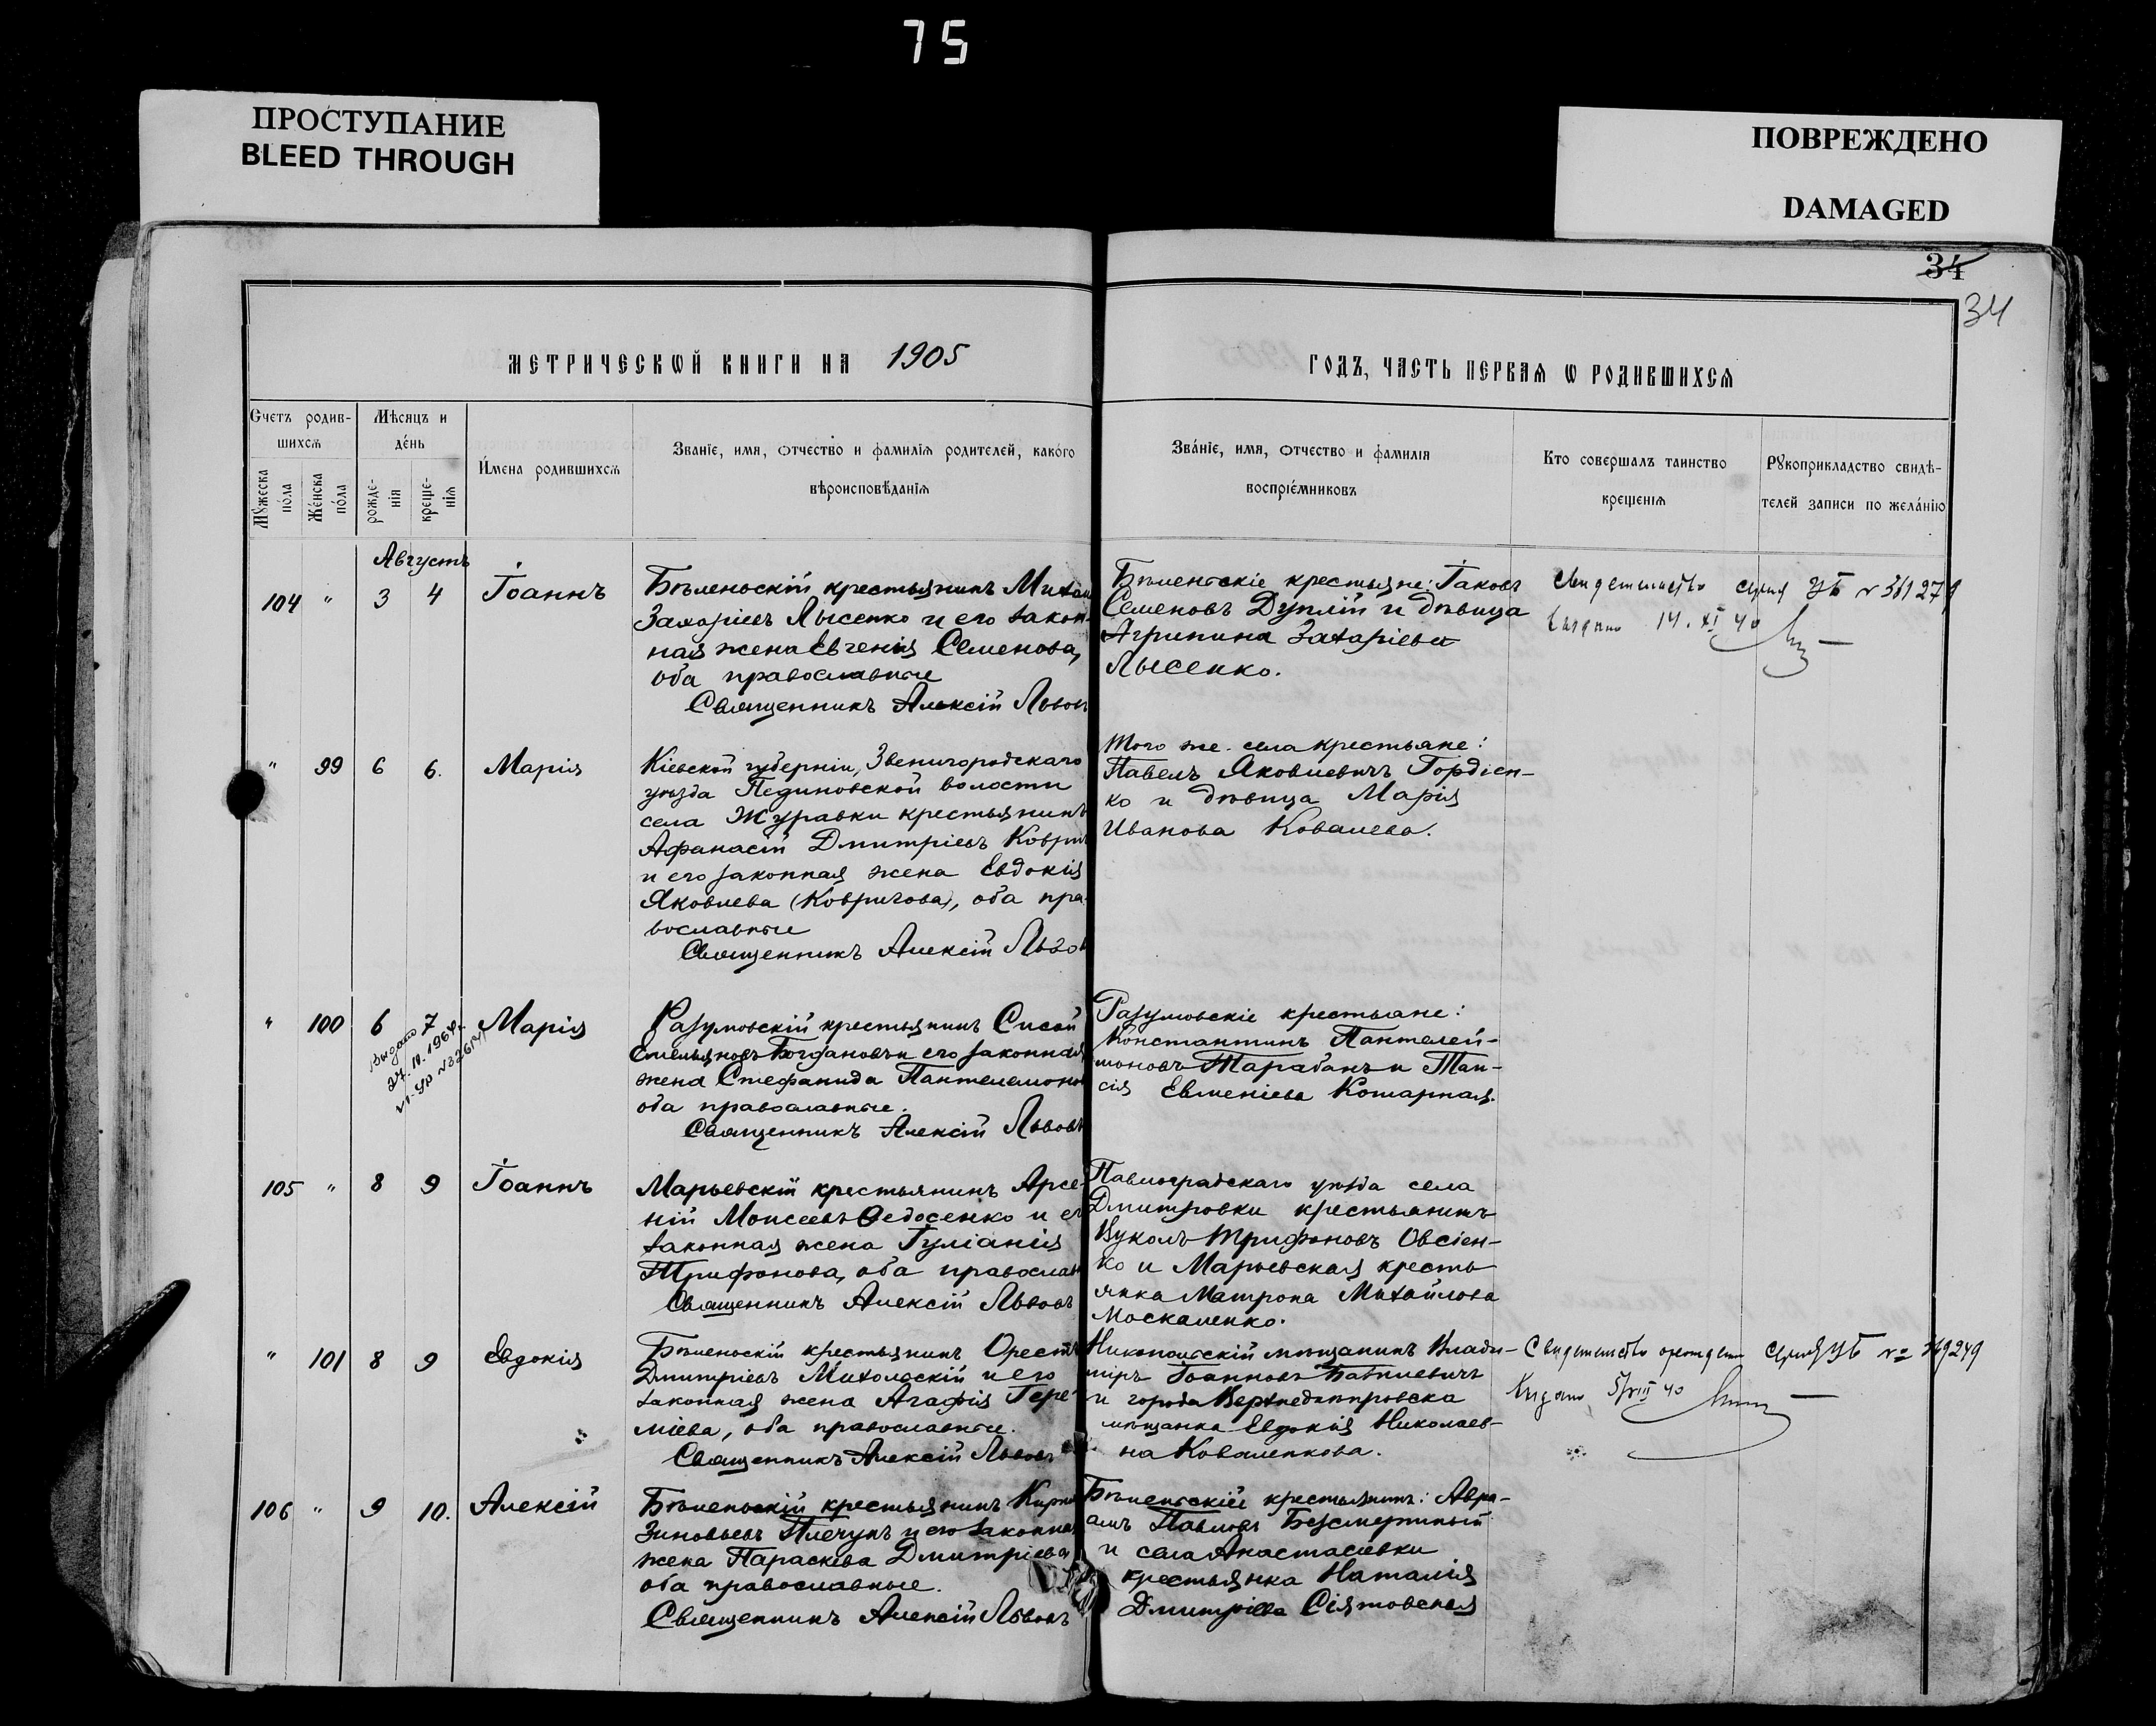 75
ПРОСТУПАНИЕ
BLEED THROUGH
ПОВРЕЖДЕНО
DAMAGED
34
34
МЕТРИЧЕСКѠЙ КНИГИ НА 1905
ГОДЪ, ЧАСТЬ ПЕРВАѦ Ѡ РОДИВШИХСѦ
Счетъ родив-
шихсѧ
Мꙋжеска пола
Женска пола
Мѣсяцъ и
день
рожде-
нія
креще-
нія
Имена родившихсѧ
Званіе, имя, отчество и фамилія родителей, какого
вѣроисповѣданія
Званіе, имя, отчество и фамилія
воспріемниковъ
Кто совершалъ таинство
крещенія
Рꙋкоприкладство свидѣ-
телей записи по желанію
Августъ
104 " 3 4 Іоаннъ
Бѣленьскій крестьянинъ Михаи
Захаріевъ Лысенко и его закон-
ная жена Евгенія Семенова,
оба православные
Священникъ Алексій Львовъ
Бѣленьскіе крестьяне: Іаковъ
Семеновъ Дуплій и дѣвица
Агрипина Захаріева
Лысенко.
Свидетельство серия УБ №
выдано 14. XI 40
" 99 6 6. Марія
Кіевской губерніи, Звенигородскаго
уѣзда Пединовской волости
села Журавки крестьянинъ
Афанасій Дмитріевъ Коври
и его законная жена Евдокія
Яковлева (Ковригова), оба пра-
вославные
Священникъ Алексій Львов
Того же села крестьяне:
Павелъ Яковлевичъ Гордіен-
ко и дѣвица Марія
Иванова Ковалева.
" 100 6 7 Марія
Выдано
27. IV. 1964 г.
Разумовскій крестьянинъ Сисой
Емельяновъ Богдановъ и его законная
жена Стефанида Пантелемоно
оба православные.
Священникъ Алексій Львовъ
Разумовскіе крестьяне:
Константинъ Пантелей-
моновъ Тарабанъ и Таи-
сія Евменіева Кошарная.
105 " 8 9 Іоаннъ
Марьевскій крестьянинъ Арсе-
ній Моисеевъ Ѳедосенко и ег
законная жена Іуліанія
Трифонова, оба православн
Священникъ Алексій Львовъ
Павлоградскаго уѣзда села
Дмитровки крестьянинъ
Вуколъ Трифоновъ Овсіен-
ко и Марьевская кресть-
янка Матрона Михайлова
Москаленко.
" 101 8 9 Евдокія
Бѣленьскій крестьянинъ Орестъ
Дмитріевъ и его
законная жена Агафія Іере-
міева, оба православные.
Священникъ Алексій Львовъ
Никопольскій мѣщанинъ Влади-
міръ Іоанновъ
и города Верхнеднѣпровска
мѣщанка Евдокія Николаев-
на Коваленкова.
Свидетельство о рождении серия УБ № 349249
Выдано 5/VIII 40
106 " 9 10. Алексій
Бѣленьскій крестьянинъ Карп
Зиновьевъ Плечунъ и его законна
жена Параскева Дмитріева
оба православные.
Священникъ Алексій Львовъ
Бѣленьскій крестьянинъ: Авра-
амъ Павловъ Безсмертный
и села Анастасіевки
крестьянка Наталія
Дмитріева